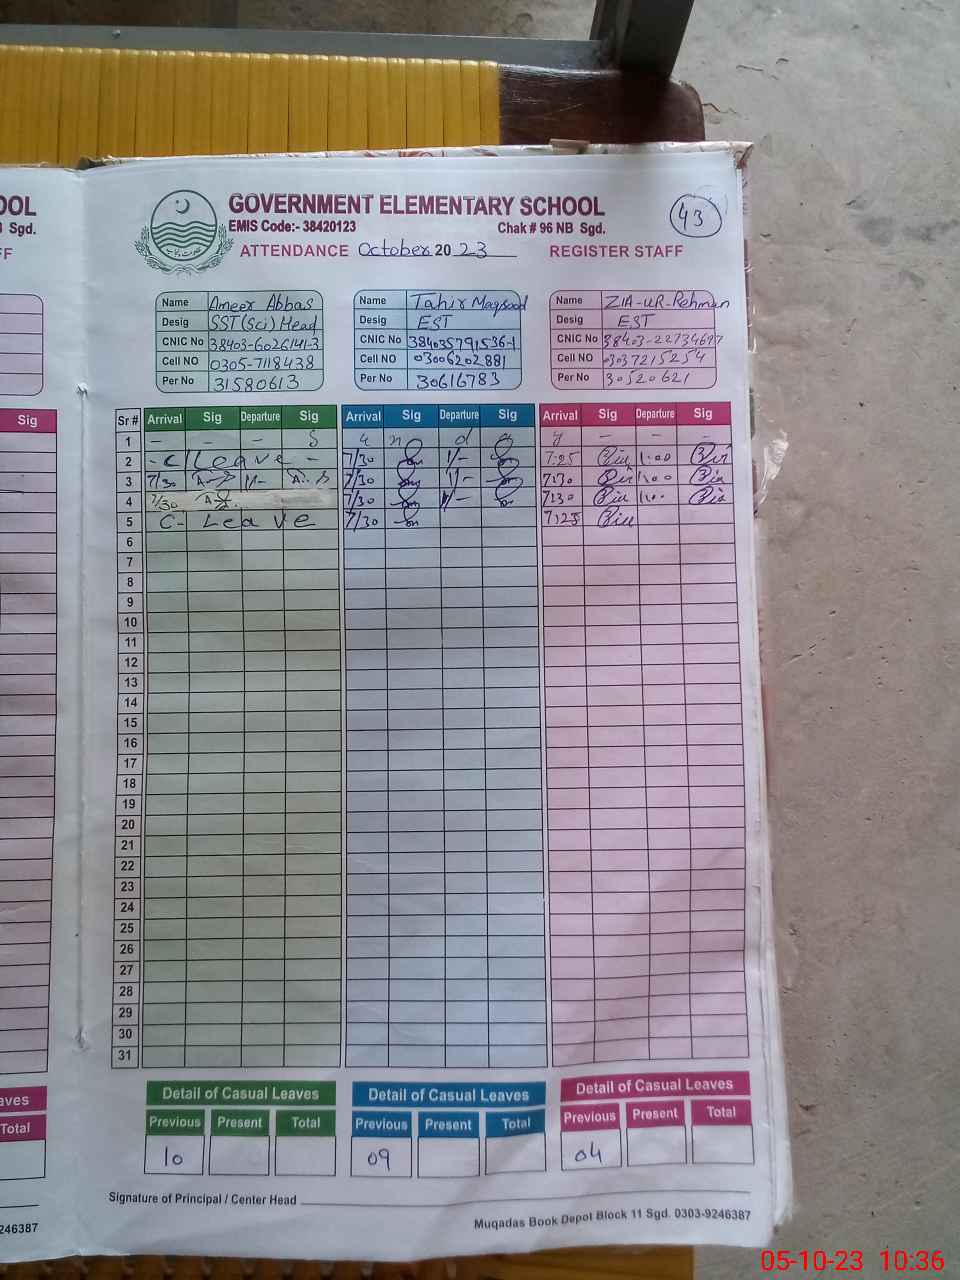 OOL
Sgd.
FF
Sig
aves
Total
246387
GOVERNMENT ELEMENTARY SCHOOL
EMIS Code:- 38420123 Chak # 96 NB Sgd.
43
ATTENDANCE October 2023 REGISTER STAFF
Name Ameer Abbas
Desig SST(Sci) Head
CNIC No 38403-6026141-3
Cell NO 0305-7118438
Per No 31580613
Name Tahir Maqsood
Desig EST
CNIC No 384035791536-1
Cell NO 03006202881
Per No 30616783
Name ZIA-UR-Rehman
Desig EST
CNIC No 38403-22734697
Cell NO 03037215254
Per No 30520621
Sr # Arrival Sig Departure Sig Arrival Sig Departure Sig Arrival Sig Departure Sig
1 - - - S u n d a y - - -
2 - C/Leave - 7/30 1/- 7:25 1:00
3 7/30 1/- 7/30 1/- 7:30 1:00
4 7/30 7/30 1/- 7:30 1:00
5 C- Leave 7/30 7:25
6
7
8
9
10
11
12
13
14
15
16
17
18
19
20
21
22
23
24
25
26
27
28
29
30
31
Detail of Casual Leaves Detail of Casual Leaves Detail of Casual Leaves
Previous Present Total Previous Present Total Previous Present Total
10 09 04
Signature of Principal / Center Head
Muqadas Book Depot Block 11 Sgd. 0303-9246387
05-10-23 10:36